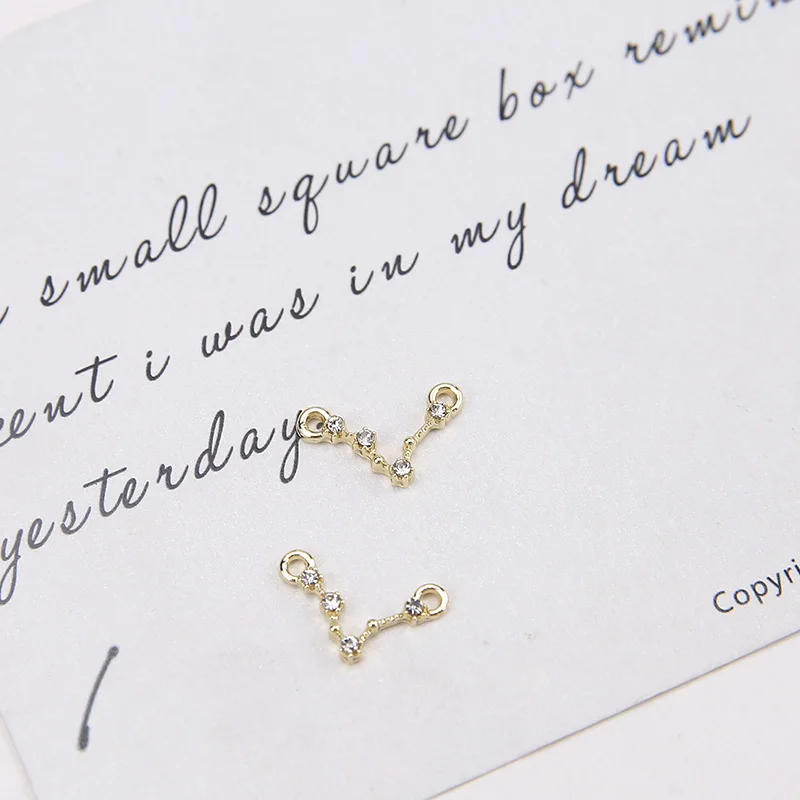 small square box remin
cent i was in my dream
yesterday
Copyri